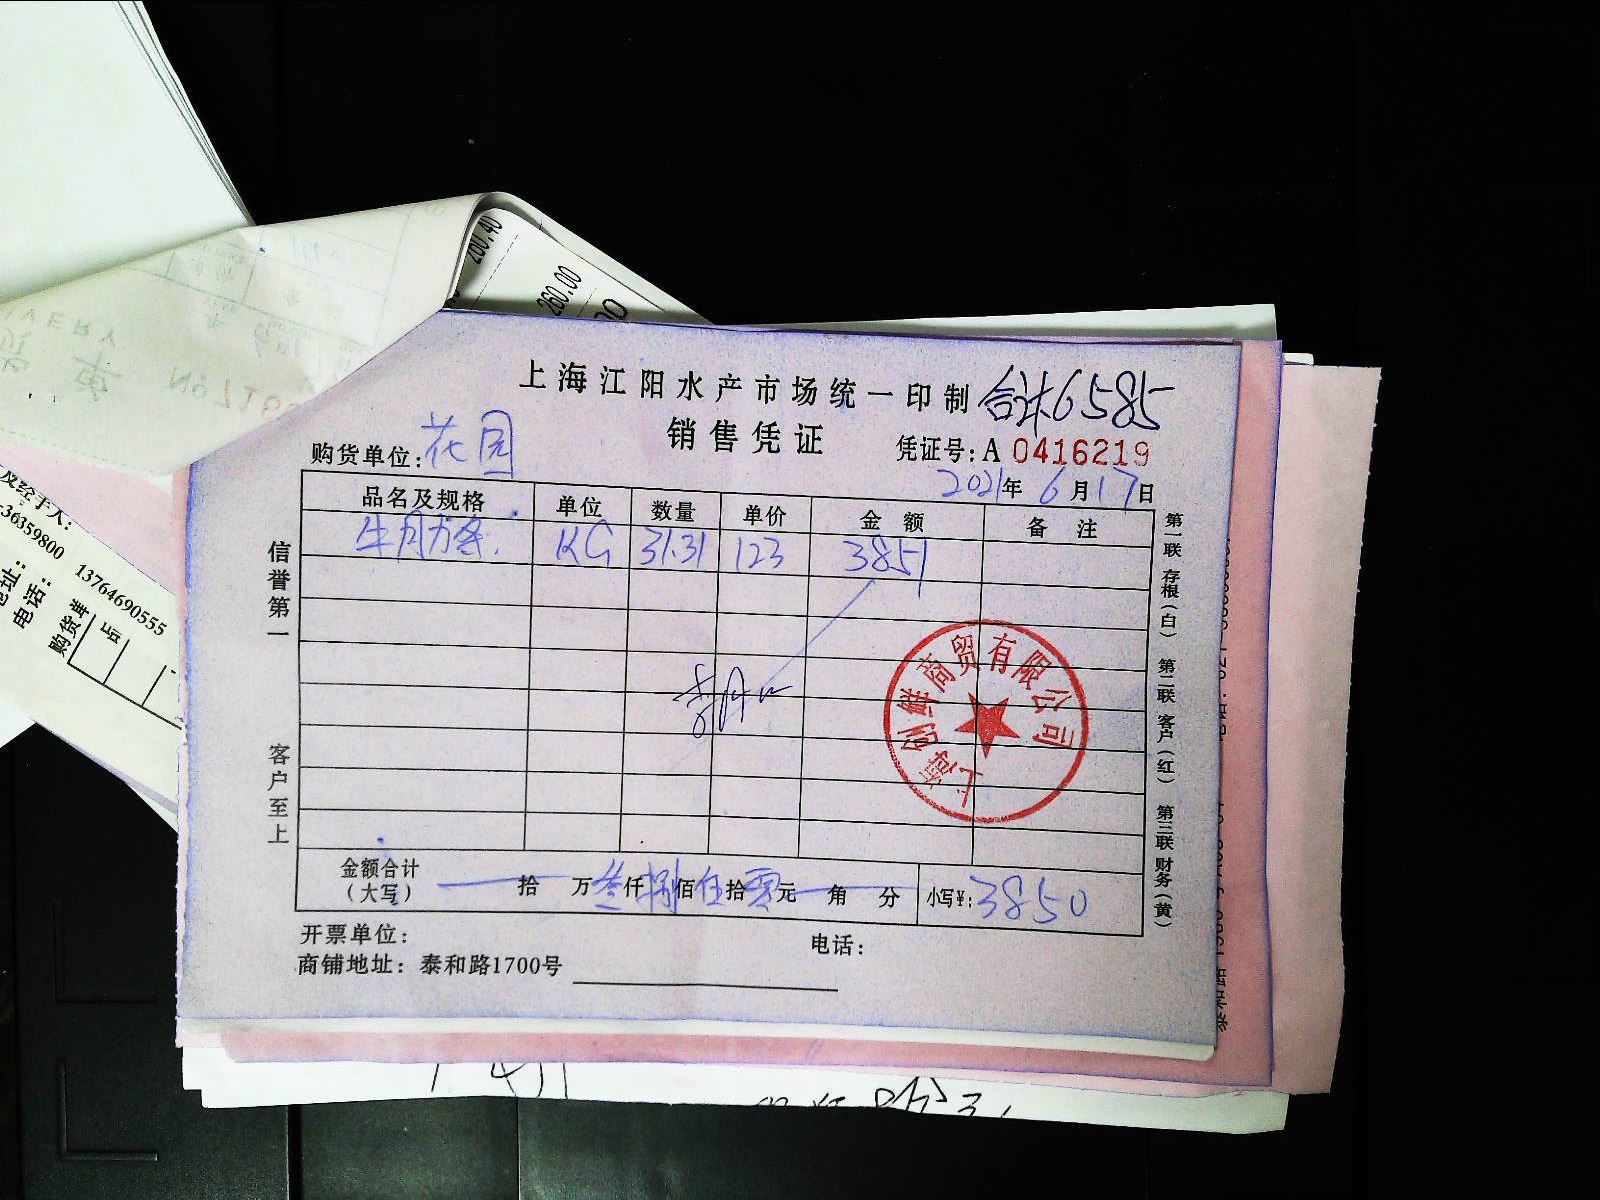 上海江阳水产市场统一印制 合计6585
销售凭证
购货单位:花园
凭证号:A 0416219
2021年6月17日
品名及规格 单位 数量 单价 金额 备注
牛肋条 KG 31.31 123 3851
信誉第一
客户至上
第一联 存根(白) 第二联 客户(红) 第三联 财务(黄)
上海创鲜商贸有限公司
金额合计(大写) 拾 万叁仟捌佰伍拾零元 角 分 小写¥:3850
开票单位: 电话:
商铺地址:泰和路1700号
260.40
260.00
及经手人:
-36359800 13764690555
电话:
购货单